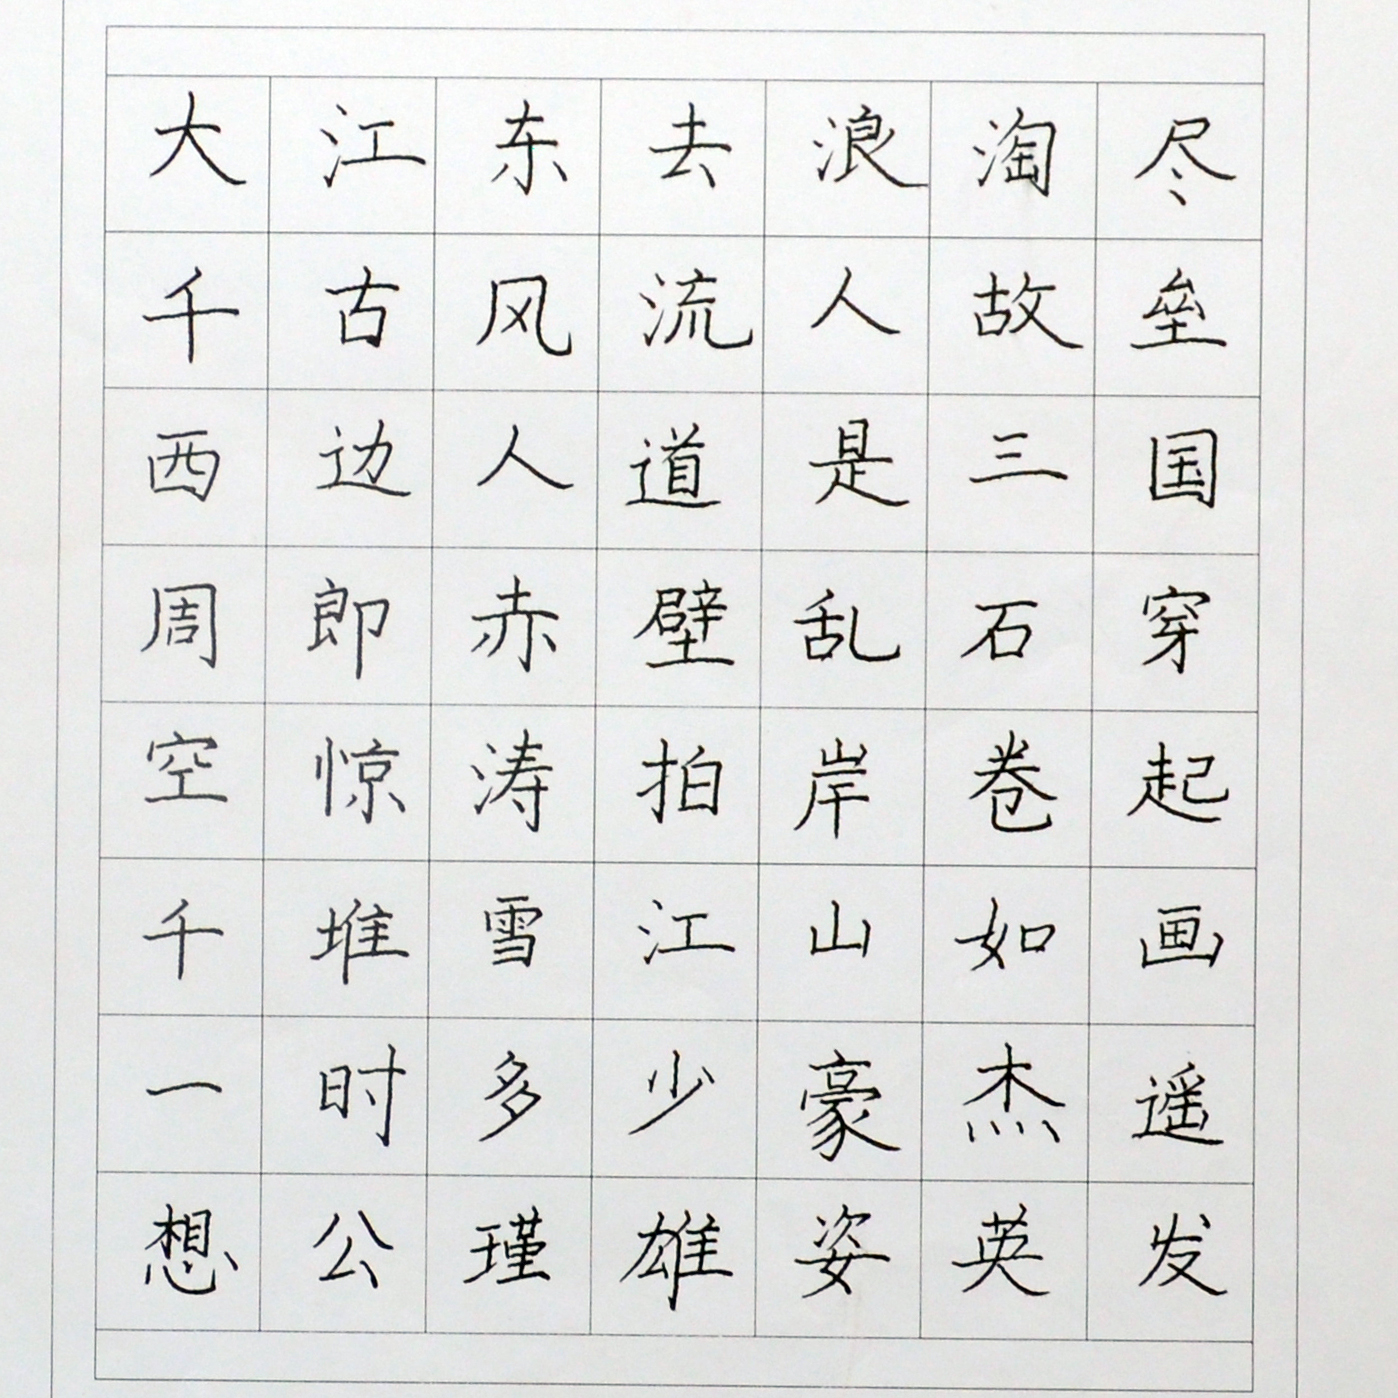 大江东去浪淘尽
千古风流人故垒
西边人道是三国
周郎赤壁乱石穿
空惊涛拍岸卷起
千堆雪江山如画
一时多少豪杰遥
想公瑾雄姿英发